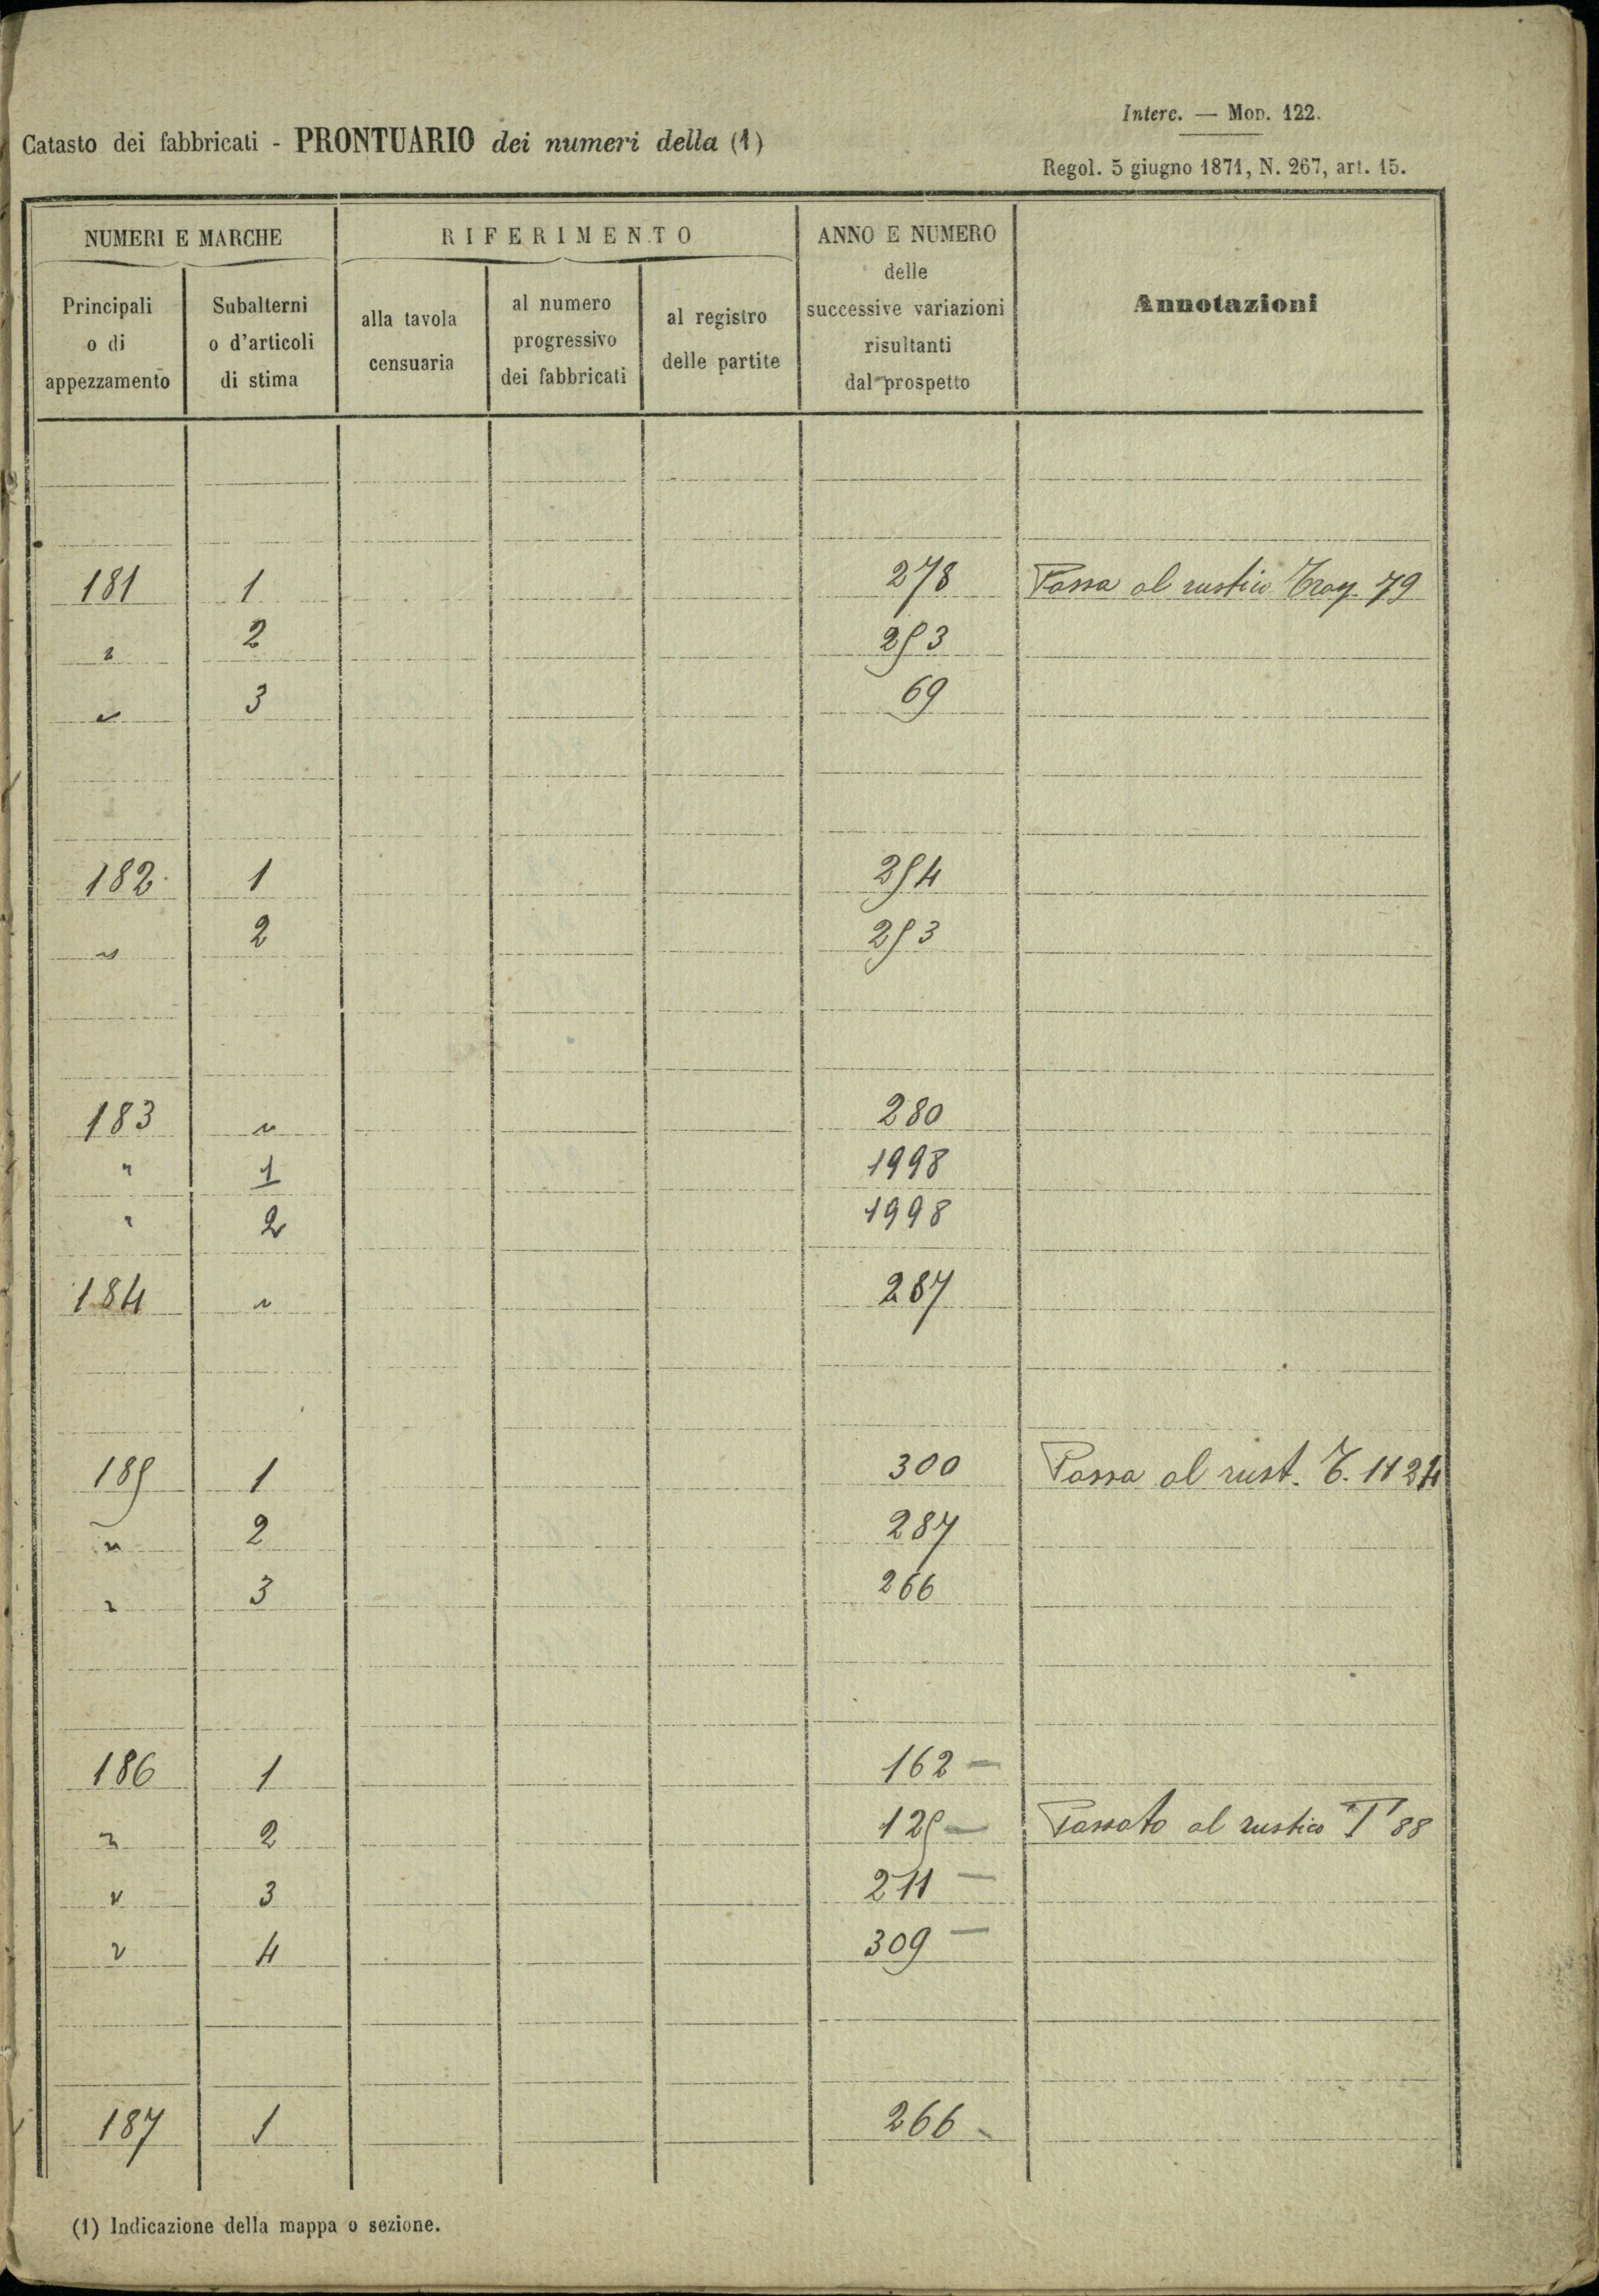 Interc. — Mod. 122.
Catasto dei fabbricati - PRONTUARIO dei numeri della (1)
Regol. 5 giugno 1871, N. 267, art. 15.
NUMERI E MARCHE RIFERIMENTO ANNO E NUMERO
delle
successive variazioni
risultanti
dal prospetto
Annotazioni
Principali
o di
appezzamento
Subalterni
o d'articoli
di stima
alla tavola
censuaria
al numero
progressivo
dei fabbricati
al registro
delle partite
181 1 278 Passa al rustico 79
" 2 253
" 3 69
182 1 254
" 2 253
183 " 280
" 1 1998
" 2 1998
184 " 287
185 1 300 Passa al rust. T. 1124
" 2 287
" 3 266
186 1 162 —
" 2 125 — Passato al rustico T 88
" 3 211 —
" 4 309 —
187 1 266 -
(1) Indicazione della mappa o sezione.